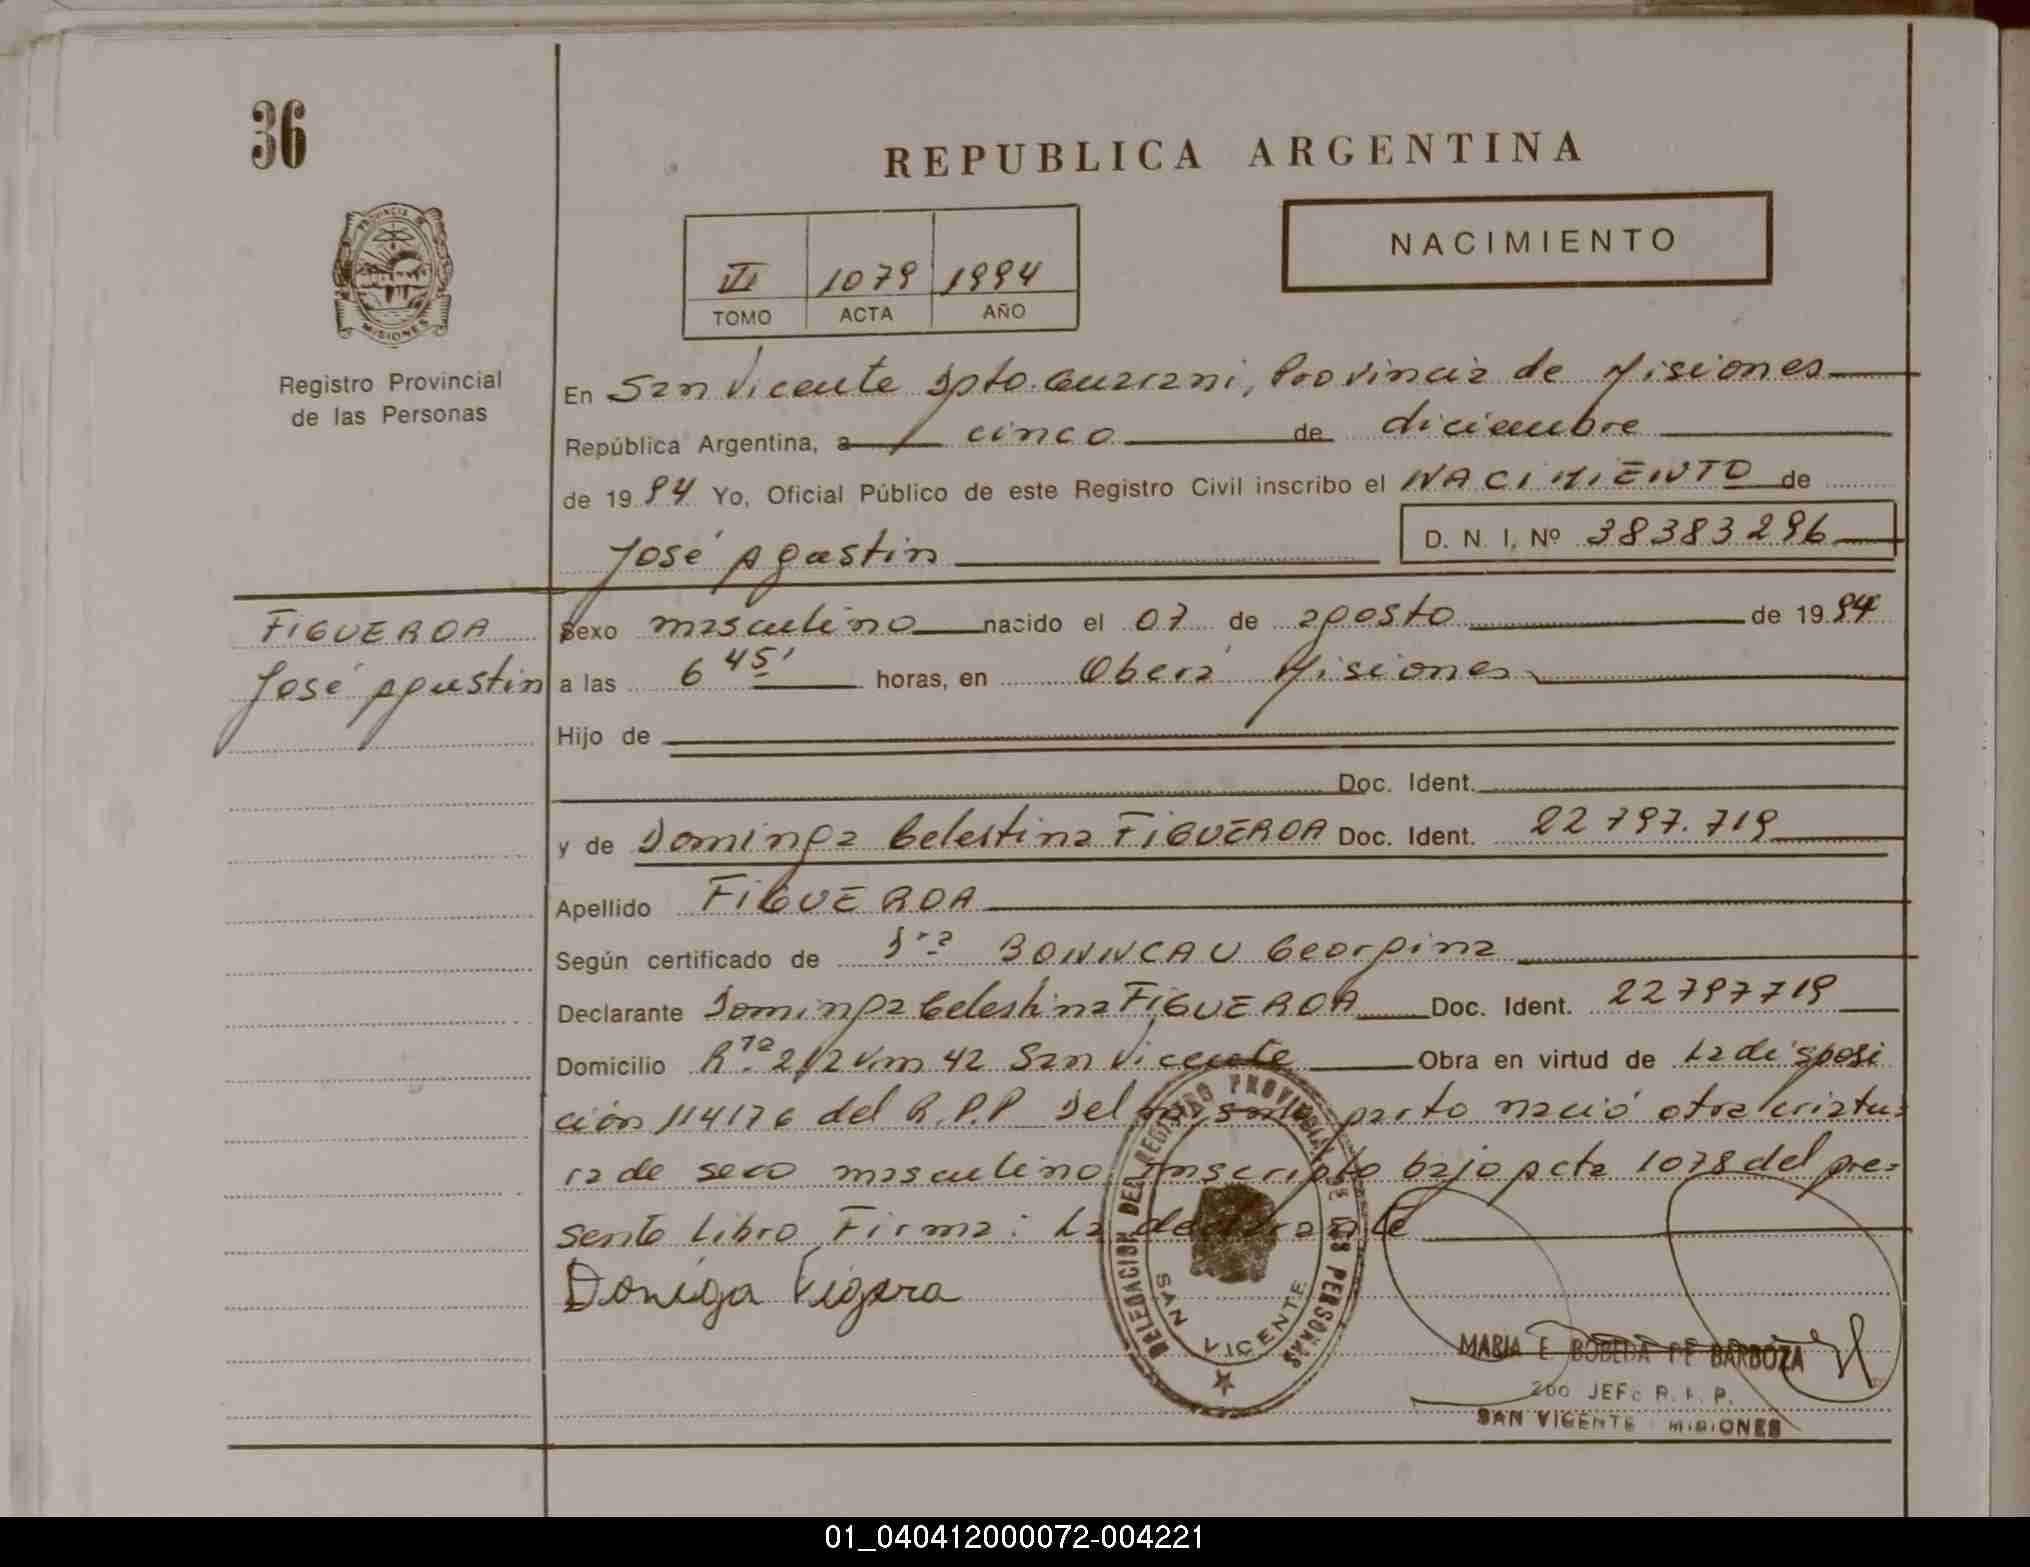 36
REPUBLICA ARGENTINA
NACIMIENTO
VI 1079 1994
TOMO ACTA AÑO
PROVINCIA DE MISIONES
Registro Provincial
de las Personas
En San Vicente Dpto. Guarani, Provincia de Misiones
República Argentina, a cinco de diciembre
de 1994 Yo, Oficial Público de este Registro Civil inscribo el NACIMIENTO de
José Agustin D. N. I. Nº 38383296
FIGUEROA
José Agustin
Sexo masculino nacido el 07 de agosto de 1994
a las 6 45' horas, en Oberá Misiones
Hijo de
Doc. Ident.
y de Dominga Celestina FIGUEROA Doc. Ident. 22797.719
Apellido FIGUEROA
Según certificado de Dra BONNCAU Georgina
Declarante Dominga Celestina FIGUEROA Doc. Ident. 22797719
Domicilio Rta 212 Km 42 San Vicente Obra en virtud de La disposi
ción 114176 del R.P.P Del mismo parto nació otra criatu-
ra de sexo masculino Inscripto bajo acta 1078 del pre-
sente Libro Firma: La declarante
Doniga Figera
DELEGACION DEL REGISTRO PROVINCIAL DE LAS PERSONAS
SAN VICENTE
MARIA E. BOBEDA DE BARBOZA
2do JEFE R. P. P.
SAN VICENTE MISIONES
01_040412000072-004221